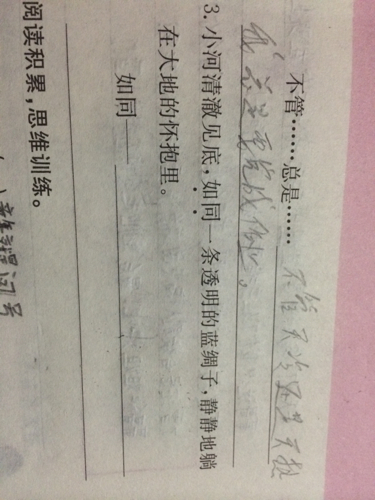 不管……总是…… 不管天冷还是天热
我总是要完成作业。
3. 小河清澈见底,如同一条透明的蓝绸子,静静地躺
在大地的怀抱里。
如同——
阅读积累,思维训练。